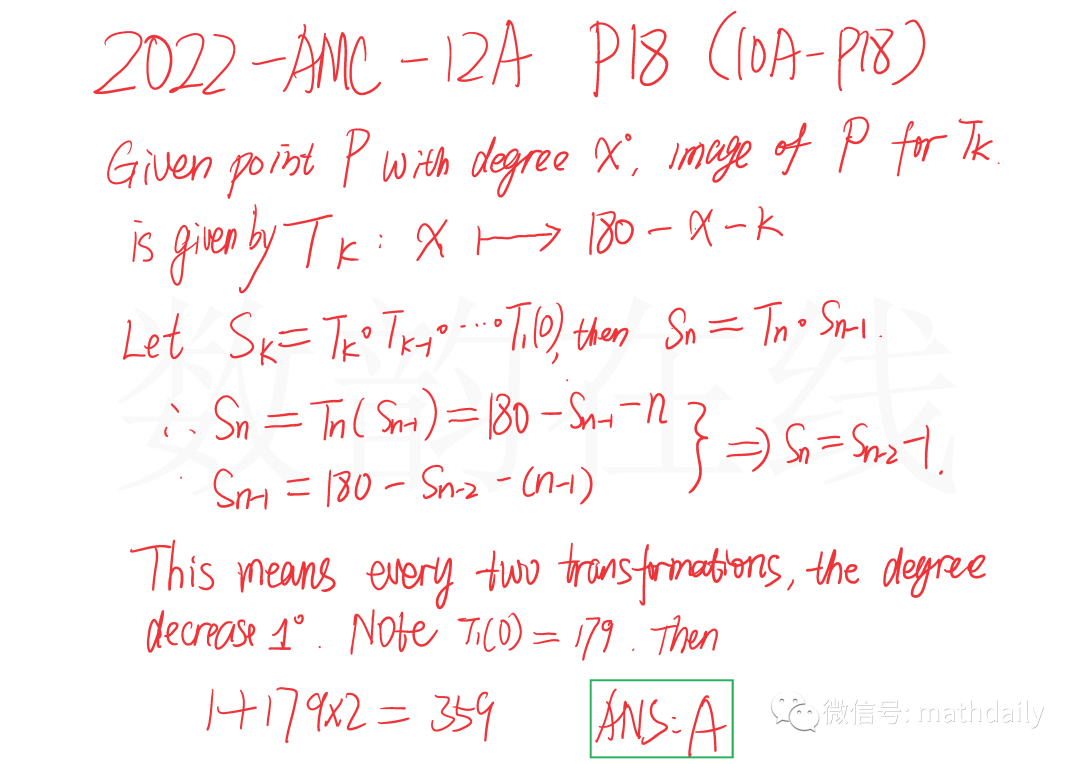 2022-AMC-12A P18 (10A-P18)
Given point P with degree x°, image of P for Tₖ.
is given by Tₖ: x ⟼ 180 - x - k
Let Sₖ = Tₖ∘Tₖ₋₁∘⋯∘T₁(0), then Sₙ = Tₙ∘Sₙ₋₁.
∴ Sₙ = Tₙ(Sₙ₋₁) = 180 - Sₙ₋₁ - n
Sₙ₋₁ = 180 - Sₙ₋₂ - (n-1) } ⟹ Sₙ = Sₙ₋₂ - 1.
This means every two transformations, the degree
decrease 1°. Note T₁(0) = 179. Then
1+179×2 = 359 ANS: A
数韵在线
微信号: mathdaily